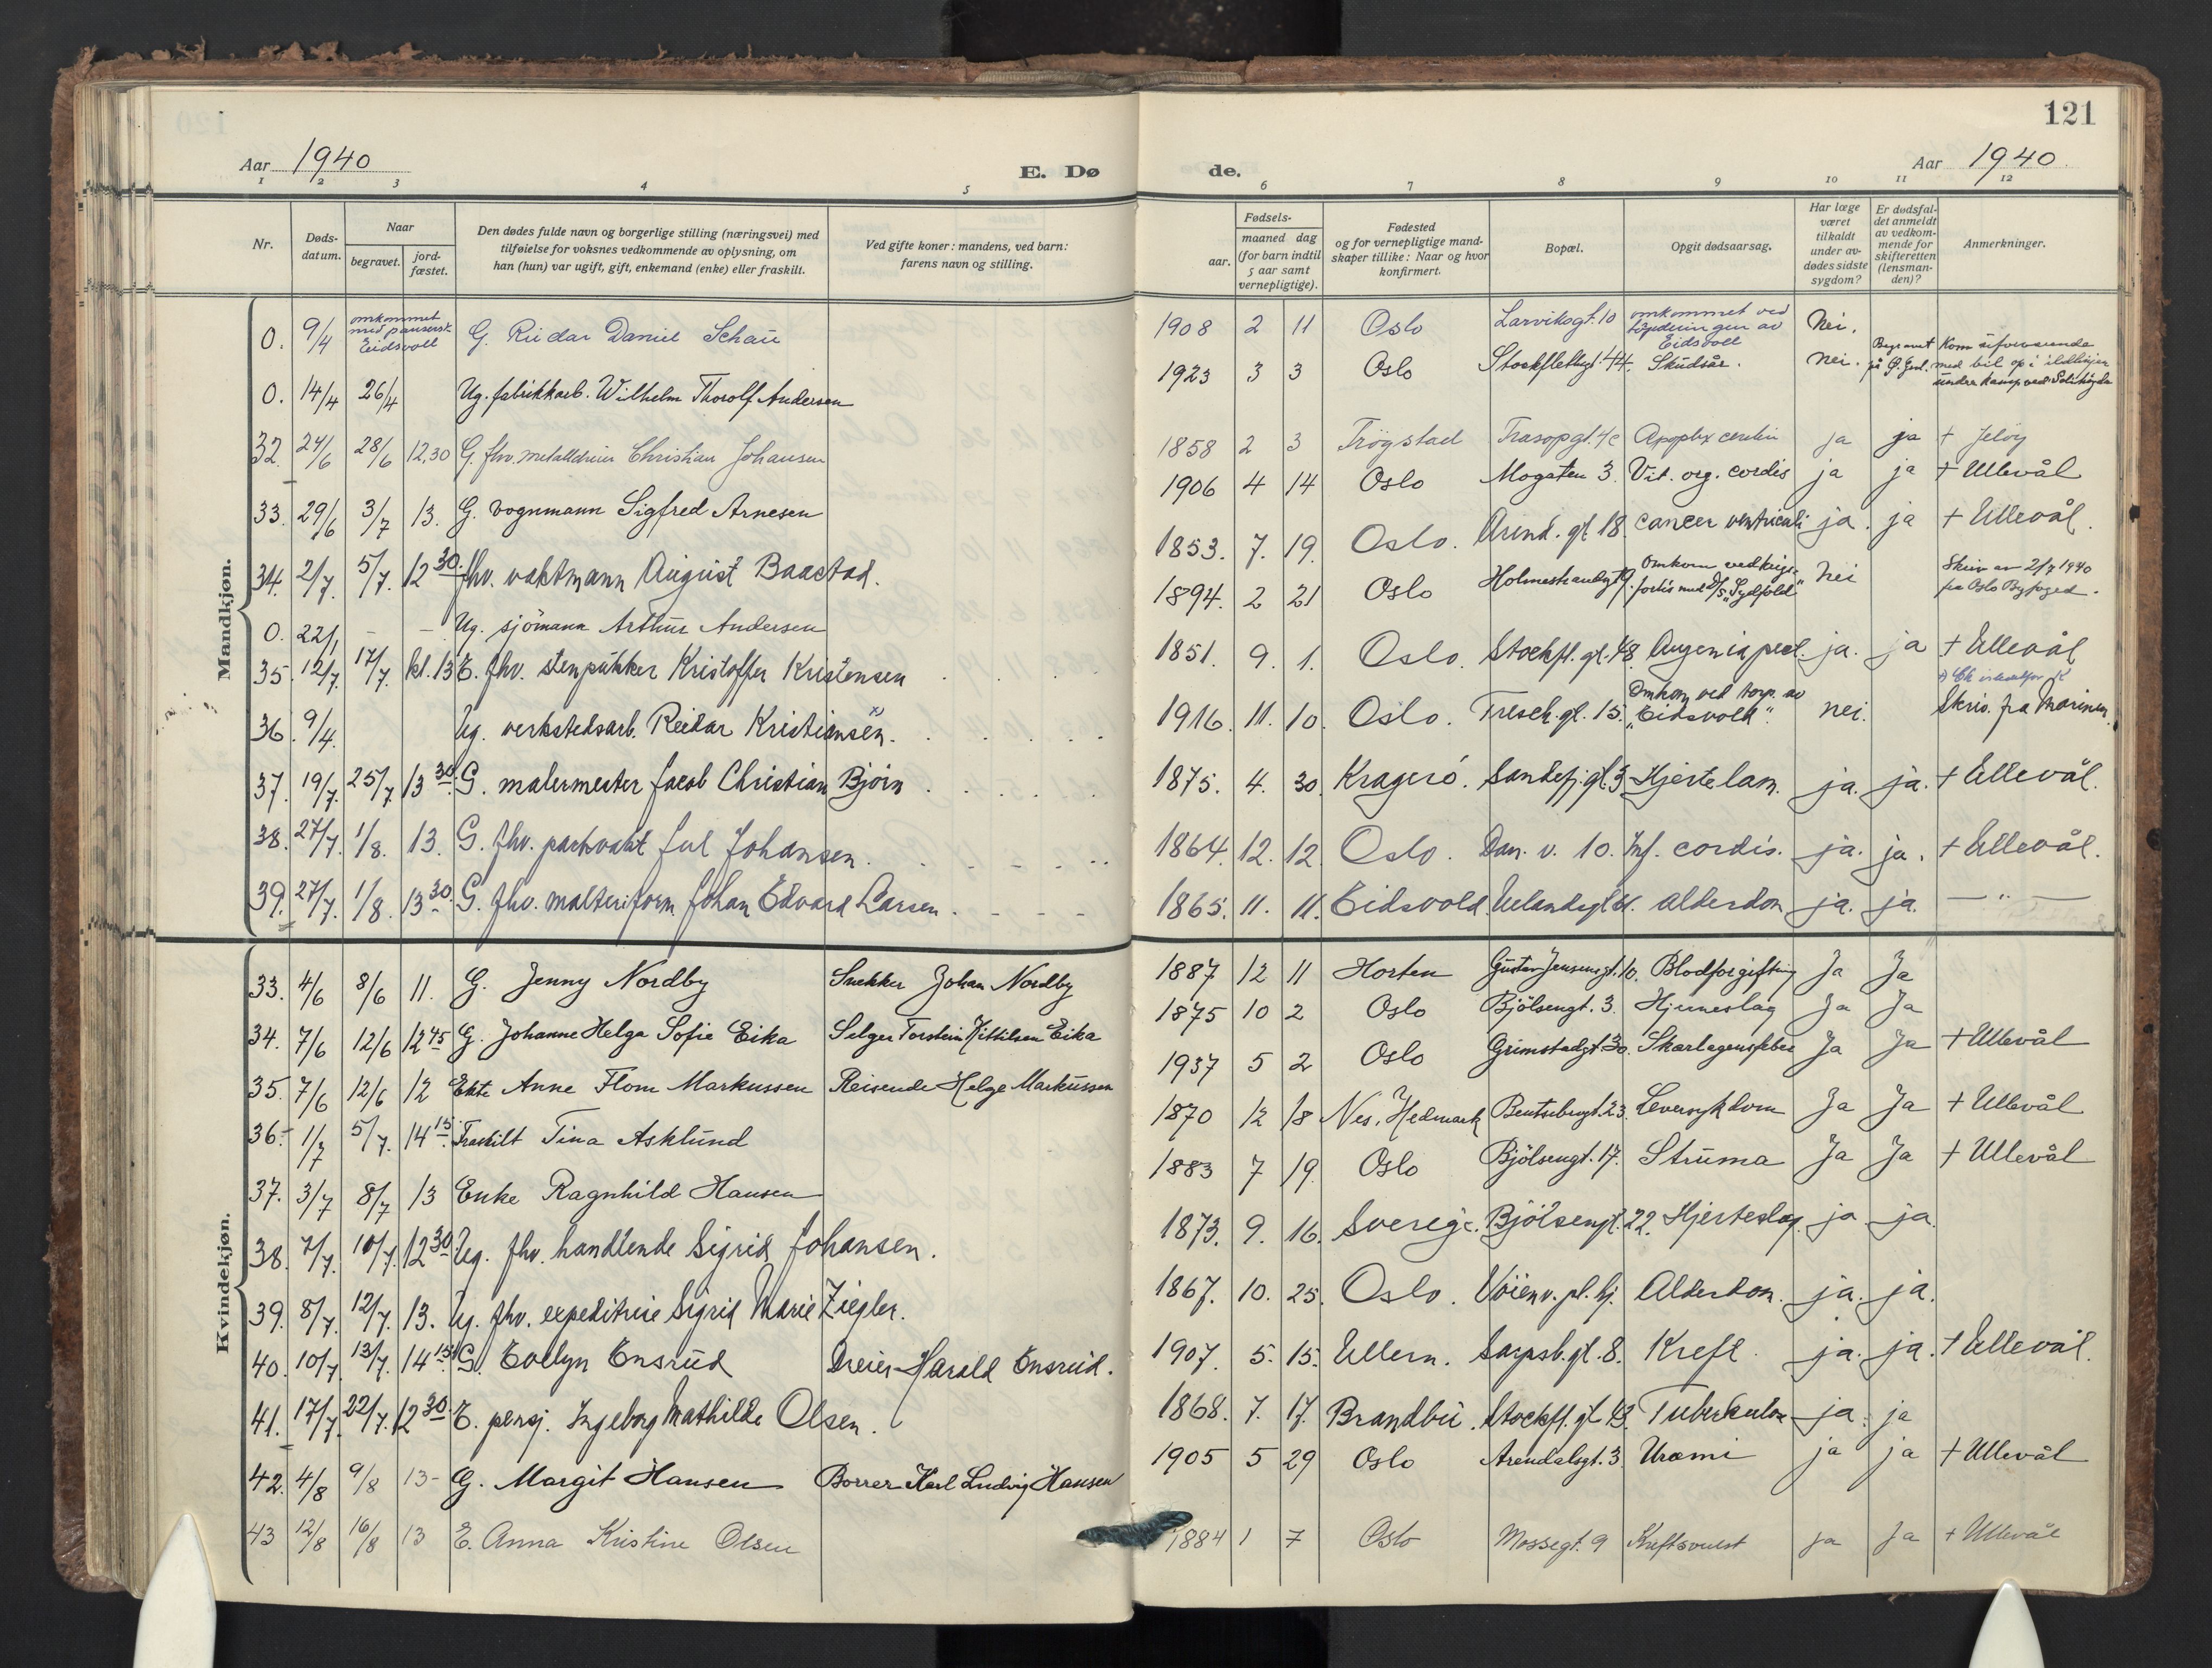 121
Aar 1940
E. Dø
de.
Aar 1940
1 2 3 4 5 6 7 8 9 10 11 12
Nr.
Døds-
datum.
Naar
begravet.
jord-
fæstet.
Den dødes fulde navn og borgerlige stilling (næringsvei) med
tilføielse for voksnes vedkommende av oplysning, om
han (hun) var ugift, gift, enkemand (enke) eller fraskilt.
Ved gifte koner: mandens, ved barn:
farens navn og stilling.
Fødsels-
aar.
maaned dag
(for barn indtil
5 aar samt
vernepligtige).
Fødested
og for vernepligtige mand-
skaper tillike: Naar og hvor
konfirmert.
Bopæl.
Opgit dødsaarsag.
Har læge
været
tilkaldt
under av-
dødes sidste
sygdom?
Er dødsfal-
det anmeldt
av vedkom-
mende for
skifteretten
(lensman-
den)?
Anmerkninger.
Mandkjøn.
0. 9/4 omkommet med pansersk. Eidsvoll G. Reidar Daniel Schau 1908 2 11 Oslo Larviksgt. 10 omkommet ved torpederingen av Eidsvoll Nei.
0. 14/4 26/4 Ug. fabrikkarb. Wilhelm Thorolf Andersen 1923 3 3 Oslo Stockflethsgt. 44. Skudsår. Nei. Begravet på Ø. Grl. Kom uforvarende med bil op i ildlinjen under kamp ved Sollihøgda
32. 24/6 28/6 12,30 G. fhv. metalldreier Christian Johansen 1858 2 3 Trögstad Trasopgt. 4c Apoplex cerebri ja ja + Jeløy
33. 29/6 3/7 13. G. vognmann Sigfred Arnesen 1906 4 14 Oslo Mogaten 3. Vit. org. cordis ja ja + Ullevål
34. 2/7. 5/7. 12 30. fhv. vaktmann August Baastad. 1853. 7. 19. Oslo. Arend. gt 18. cancer ventriculi ja. ja + Ullevål.
0. 22/1 - - Ug. sjömann Arthur Andersen 1894. 2 21 Oslo Holmestrandgt 9. Omkom ved krigs- forlis med D/S "Sydfold" Nei Skriv av 2/7 1940 fra Oslo Byfoged.
35. 12/7. 17/7. kl. 13 E. fhv. stenpukker Kristoffer Kristensen 1851. 9. 1. Oslo. Stockfl. gt. 48 Angenia pect. ja. ja + Ullevål
36. 9/4. Ug. verkstedsarb. Reidar Kristiansen. x) 1916. 11. 10. Oslo. Tresch. gt. 15. Omkom ved torp. av "Eidsvold". nei. Skriv. fra Marinen.
37. 19/7. 25/7. 13 30. G. malermester Jacob Christian Bjørn 1875. 4. 30. Kragerö. Sandefj. gt. 3 Hjertelam. ja. ja. + Ullevål.
38. 27/7. 1/8. 13. G. fhv. parkvakt Jul Johansen. 1864. 12. 12. Oslo. Dan. v. 10. Inf. cordis. ja. ja. + Ullevål.
39. 27/7. 1/8. 13 30. G. fhv. malteriform. Johan Edvard Larsen. 1865. 11. 11. Eidsvold. Uelandsgt 61. Alderdom ja. ja. — " —
Kvindekjøn.
33. 4/6 8/6 11. G. Jenny Nordby Snekker Johan Nordby 1887 12 11 Horten Gustav Jensensgt. 10. Blodforgiftning Ja Ja
34. 7/6 12/6 12 45 G. Johanne Helga Sofie Eika Selger Torstein Kittilsen Eika 1875 10 2 Oslo Bjölsengt. 3. Hjerneslag Ja Ja
35. 7/6 12/6 12 Ekte Anne Flom Markussen Reisende Helge Markussen 1937 5 2 Oslo Grimstadgt. 30. Skarlagensfeber Ja Ja + Ullevål
36. 1/7 5/7. 14 15. Fraskilt Tina Asklund 1870 12 18 Nes, Hedmark Bentsebrugt. 23. Leversykdom Ja Ja + Ullevål
37. 3/7 8/7 13 Enke Ragnhild Hansen 1883 7 19 Oslo Bjölsengt. 17. Struma Ja Ja + Ullevål
38. 7/7. 10/7. 12 30 Ug. fhv. handlende Sigrid Johansen. 1873. 9. 16. Sverige. Bjölsengt. 22. Hjerteslag. ja ja.
39. 8/7. 12/7. 13. Ug. fhv. expeditrise Sigrid Marie Ziegler. 1867. 10. 25. Oslo. Vöienv. pl. hj. Alderdom. ja. ja.
40. 10/7. 13/7. 14 15. G. Evelyn Ensrud Dreier Harald Ensrud. 1907. 5. 15. Ullern. Sarpsb. gt. 8. Kreft. ja. ja. + Ullevål.
41. 17/7. 22/7. 12 30. E. pensj. Ingeborg Mathilde Olsen. 1868. 7. 17. Brandbu. Stockfl. gt 43. Tuberkulose ja. ja
42. 4/8 9/8 13- G. Margit Hansen Borrer Karl Ludvig Hansen 1905 5 29 Oslo Arendalsgt. 3. Uræmi ja ja + Ullevål
43 12/8 16/8 13 E. Anna Kristine Olsen 1884 1 7 Oslo Mossegt. 9 Kreftsvulst ja Ja + Ullevål